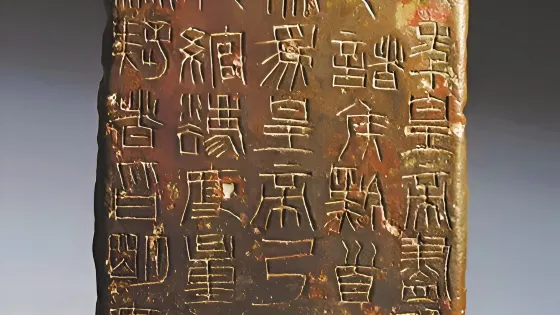 年皇帝盡
諸侯黔首
為皇帝乃
綰灋度量
疑者皆明